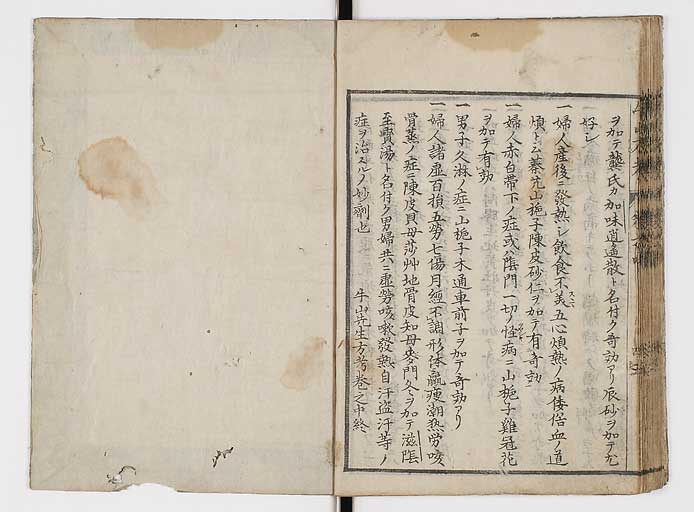 ヲ加テ龔氏カ加味逍遥散ト名付ク奇効アリ辰砂ヲ加テ尤
好シ
一 婦人産後ニ發熱シ飲食不美五心煩熱ノ病倭俗血ノ道
煩トム秦艽山梔子陳皮砂仁ヲ加テ有奇効
一 婦人赤白帯下ノ症或ハ陰門一切ノ怪病ニ山梔子雞冠花
ヲ加テ有効
一 男子久淋ノ症ニ山梔子木通車前子ヲ加テ奇効アリ
一 婦人諸虚百損五労七傷月經不調形体羸痩潮熱労咳
骨蒸ノ症ニ陳皮貝母莎艸地骨皮知母麥門冬ヲ加テ滋陰
至寶湯ト名付ク男婦共ニ虚労咳嗽發熱自汗盗汗等ノ
症ヲ治スルノ妙劑也
牛山先生方考巻之中終